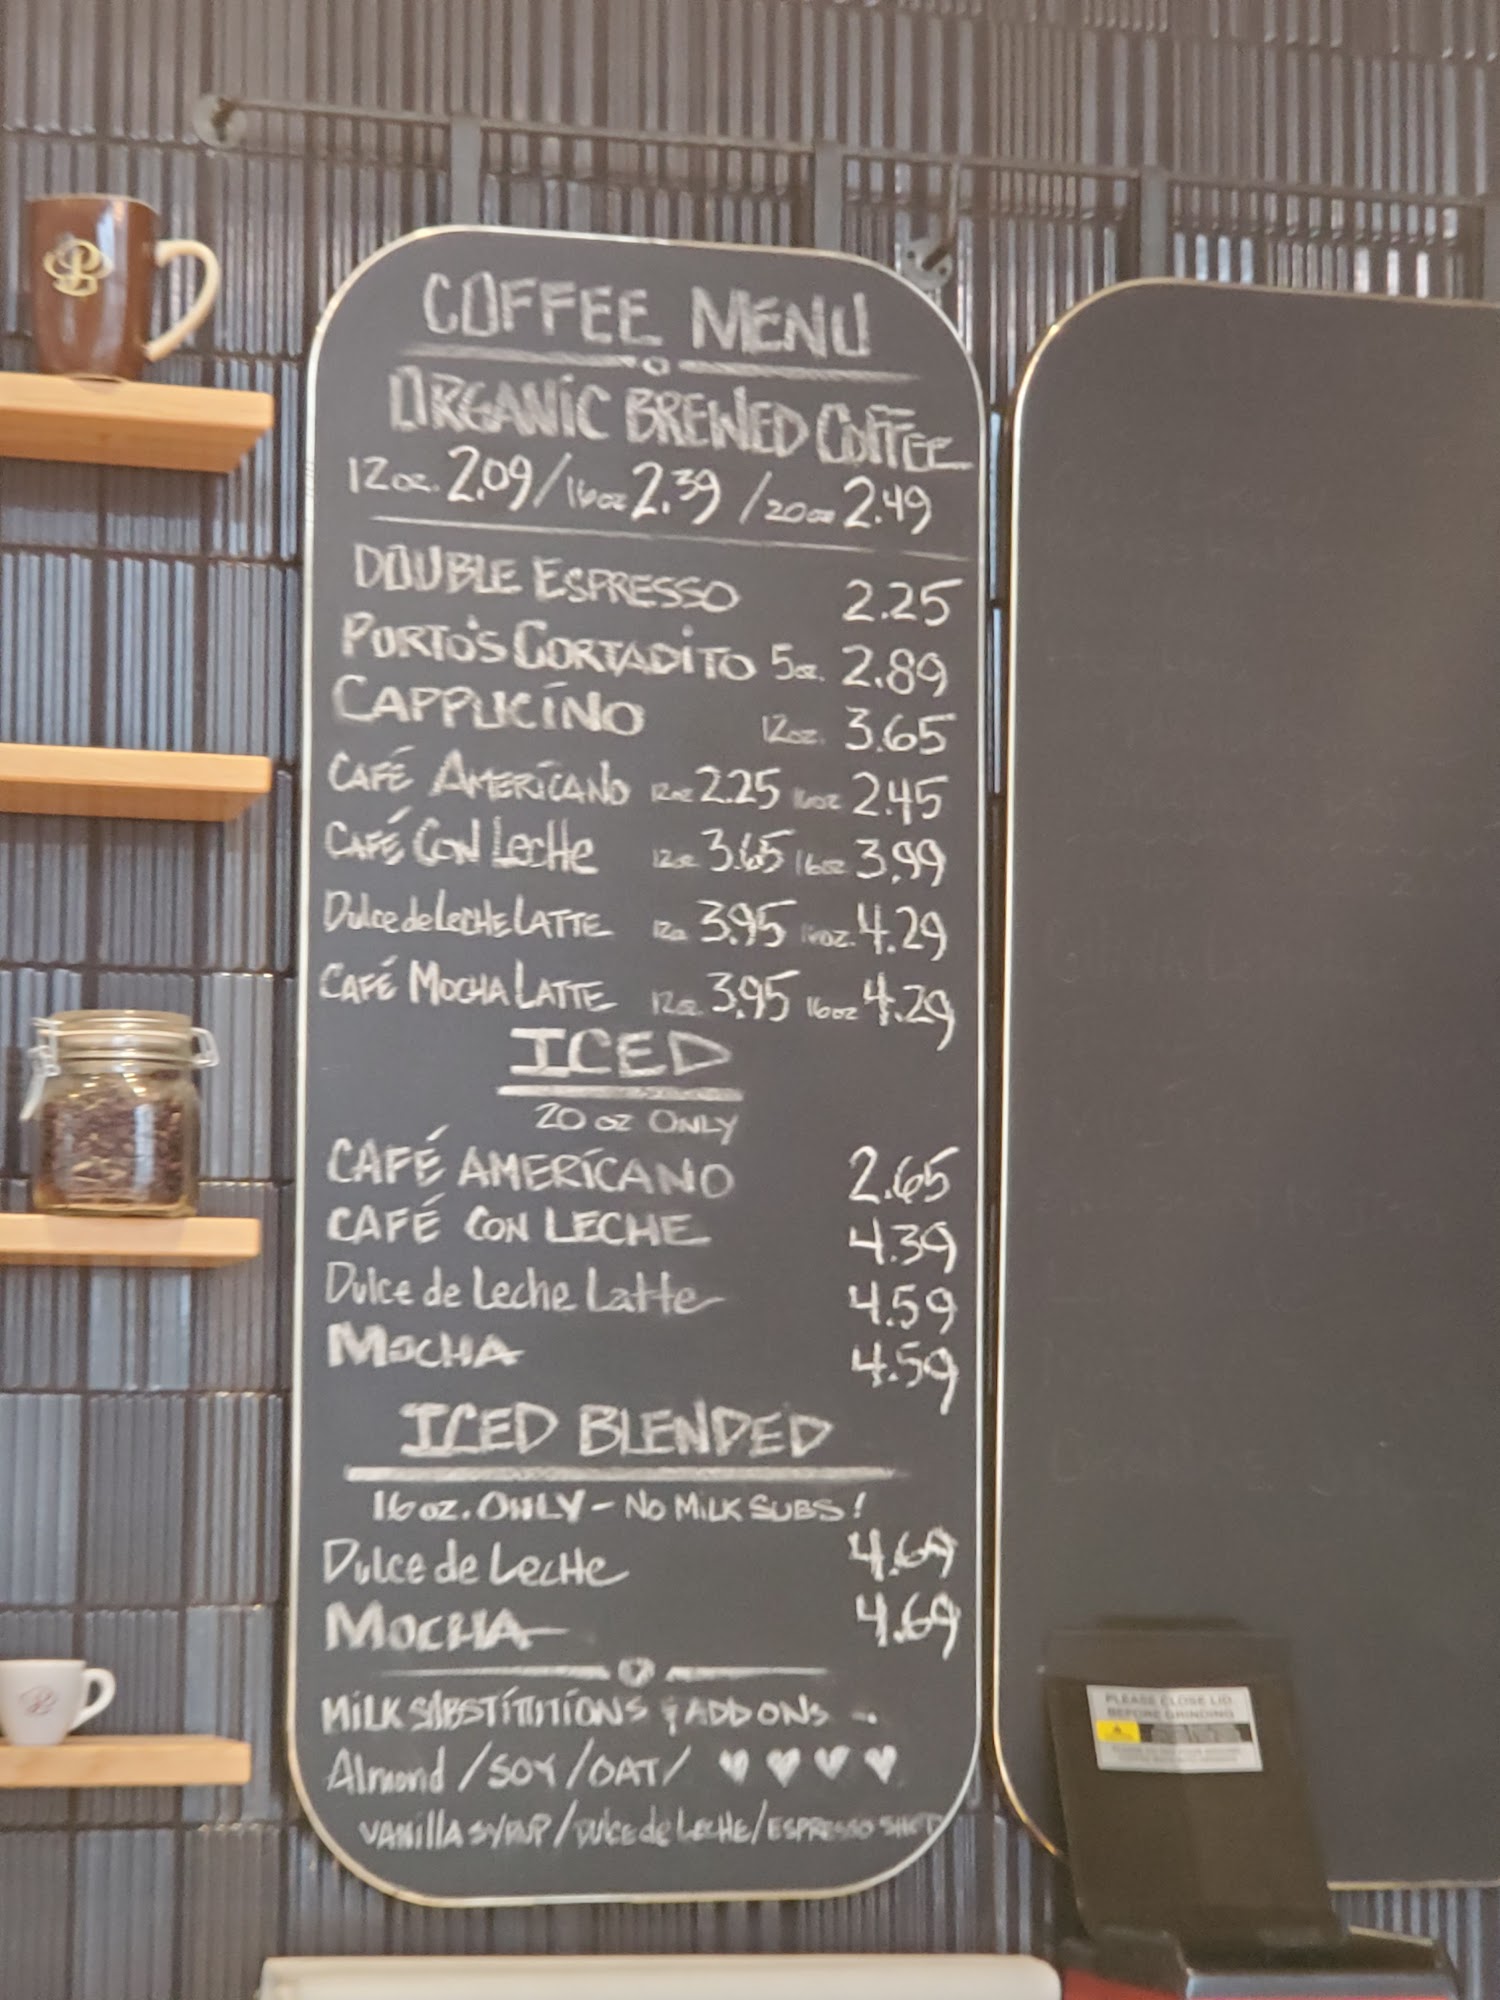 COFFEE MENU
ORGANIC BREWED COFFEE
12oz. 2.09/16oz 2.39/20oz 2.49
DOUBLE ESPRESSO 2.25
PORTO'S CORTADITO 5oz. 2.89
CAPPUCINO 12oz. 3.65
CAFÉ AMERICANO 12oz 2.25 16oz 2.45
CAFÉ CON LECHE 12oz 3.65 16oz 3.99
Dulce de LECHE LATTE 12oz 3.95 16oz. 4.29
CAFÉ MOCHA LATTE 12oz. 3.95 16oz 4.29
ICED
20 oz ONLY
CAFÉ AMERICANO 2.65
CAFÉ CON LECHE 4.39
Dulce de Leche Latte 4.59
MOCHA 4.59
ICED BLENDED
16oz. ONLY - NO MILK SUBS!
Dulce de Leche 4.69
MOCHA 4.69
MILK SUBSTITUTIONS & ADD ONS -.
Almond/SOY/OAT/ ♥ ♥ ♥ ♥
VANILLA SYRUP/DULCE de LECHE/ESPRESSO SHOT
PLEASE CLOSE LID
BEFORE GRINDING